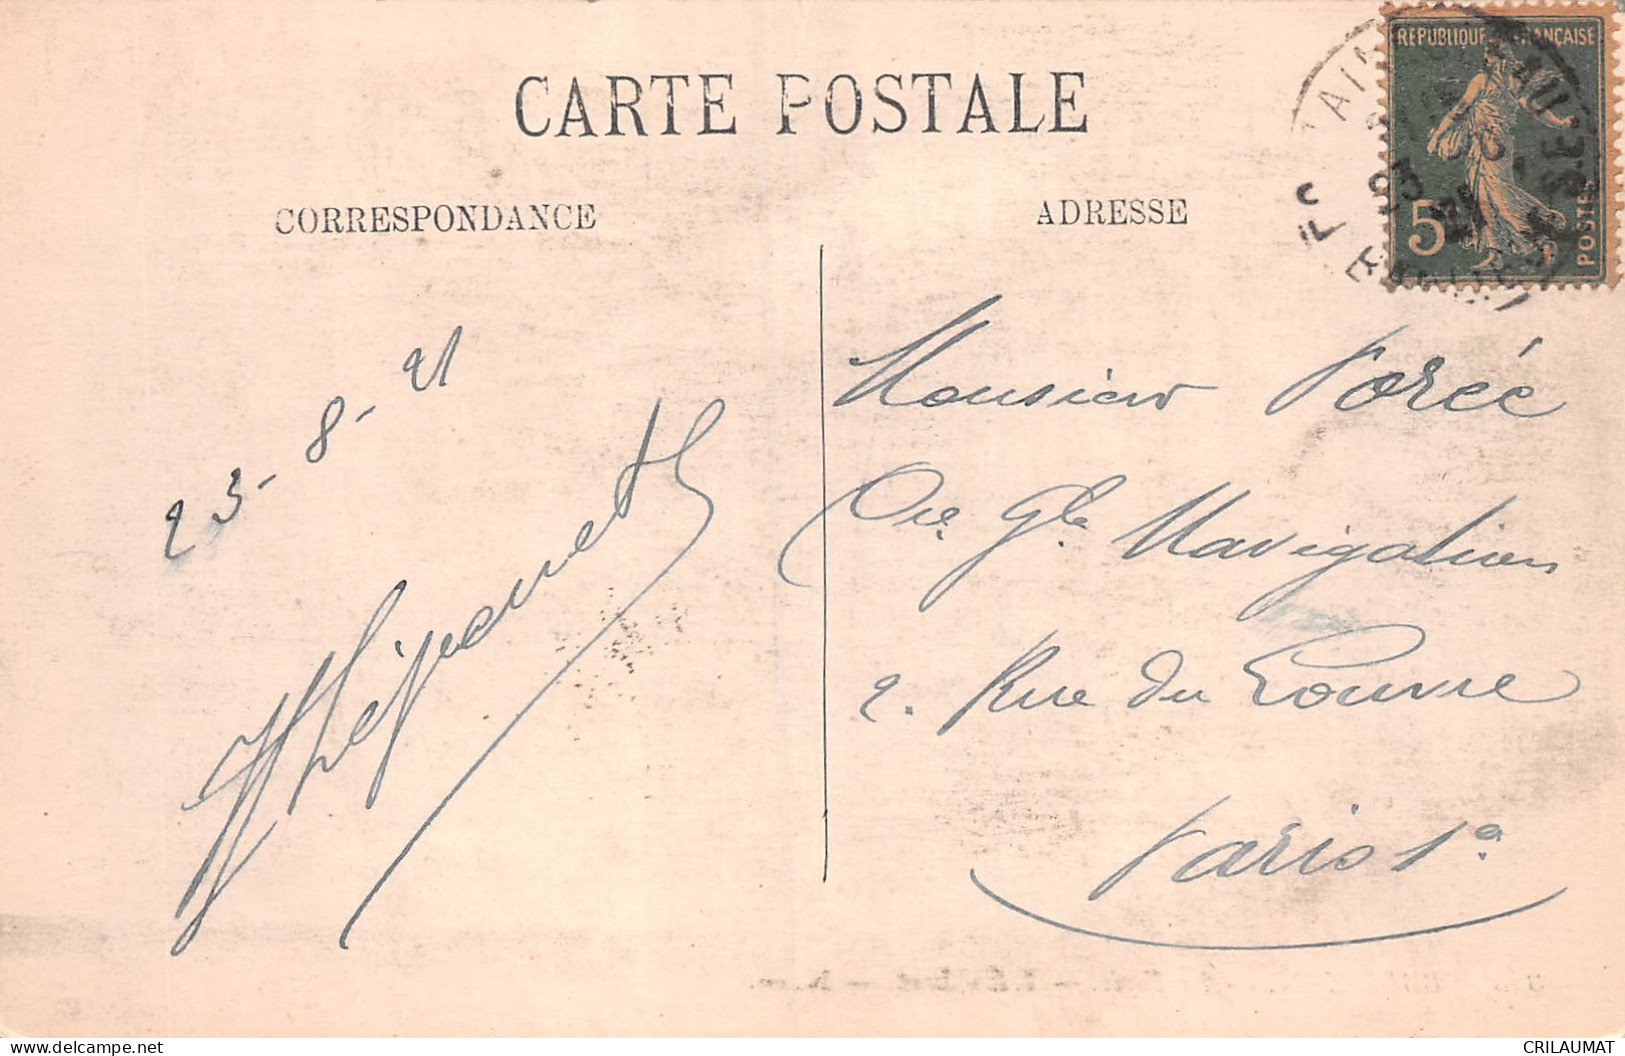 CARTE POSTALE
CORRESPONDANCE
ADRESSE
REPUBLIQUE FRANÇAISE
5
POSTES
23-8-21
Monsieur Porée
Cie. Gle. Navigation
2. Rue du Louvre
Paris 1e
CRILAUMAT